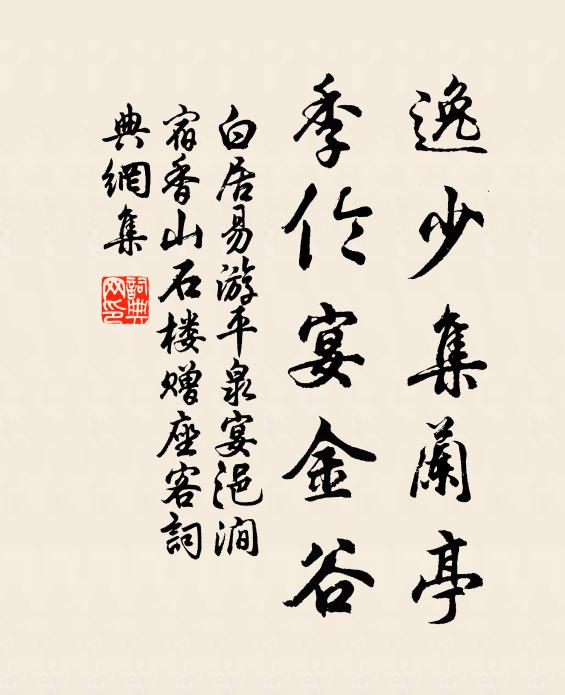 逸少集蘭亭
季伦宴金谷
白居易游平泉宴浥涧
宿香山石楼赠座客詞
典網集
詞典网印